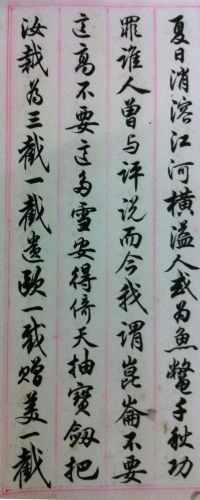 夏日消溶江河横溢人或为鱼鳖千秋功
罪谁人曾与评说而今我谓崑崙不要
这高不要这多雪安得倚天抽寶劔把
汝裁为三截一截遗欧一截赠美一截